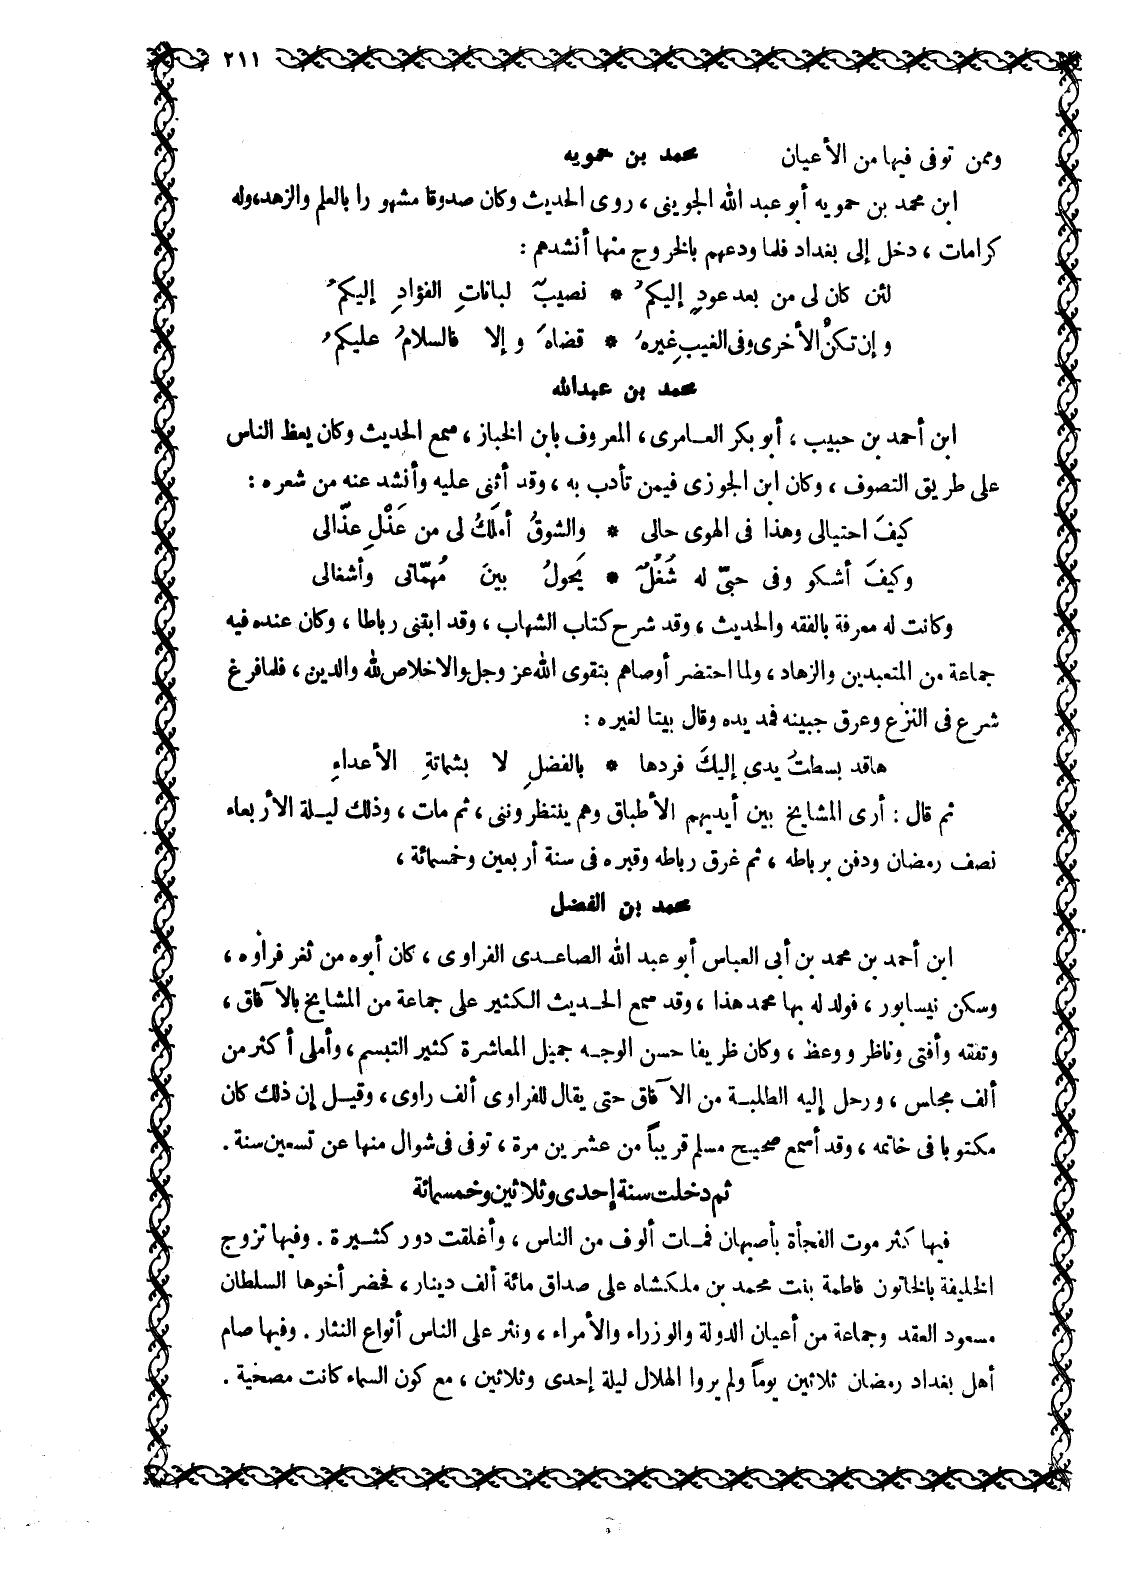 ٢١١
وممن توفى فيها من الأعيان محمد بن حمويه
ابن محمد بن حمويه أبو عبد الله الجوينى ، روى الحديث وكان صدوقا مشهورا بالعلم والزهد، وله
كرامات ، دخل إلى بغداد فلما ودعهم بالخروج منها أنشدهم :
لئن كان لى من بعد عودٍ إليكمُ * نصيبٌ لباناتِ الفؤادِ إليكمُ
و إن تكنْ الأخرى وفى الغيبِ غيرهُ * قضاهَ و إلا فالسلامُ عليكمُ
محمد بن عبدالله
ابن أحمد بن حبيب ، أبو بكر العـامرى ، المعروف بابن الخباز ، سمع الحديث وكان يعظ الناس
على طريق التصوف ، وكان ابن الجوزى فيمن تأدب به ، وقد أثنى عليه وأنشد عنه من شعره :
كيفَ احتيالى وهذا فى الهوى حالى * والشوقُ أملكُ لى من عَذْلِ عذّالى
وكيفَ أشكو وفى حبّى له شُغُلٌ * يَحولُ بينَ مُهمّاتى وأشغالى
وكانت له معرفة بالفقه والحديث ، وقد شرح كتاب الشهاب ، وقد ابتنى رباطا ، وكان عنده فيه
جماعة من المتعبدين والزهاد ، ولما احتضر أوصاهم بتقوى الله عز وجل والاخلاص لله والدين ، فلما فرغ
شرع فى النزع وعرق جبينه فمد يده وقال بيتا لغيره :
ها قد بسطتُ يدى إليكَ فردها * بالفضلِ لا بشماتةِ الأعداءِ
ثم قال : أرى المشايخ بين أيديهم الأطباق وهم ينتظروننى ، ثم مات ، وذلك ليـلة الأربعاء
نصف رمضان ودفن برباطه ، ثم غرق رباطه وقبره فى سنة أربعين وخمسمائة ،
محمد بن الفضل
ابن أحمد بن محمد بن أبى العباس أبو عبد الله الصاعـدى الفراوى ، كان أبوه من ثغر فراوه ،
وسكن نيسابور ، فولد له بها محمد هذا ، وقد سمع الحـديث الـكثير على جماعة من المشايخ بالآفاق ،
وتفقه وأفتى وناظر ووعظ ، وكان ظريفا حسن الوجـه جميل المعاشرة كثير التبسم ، وأملى أكثر من
ألف مجلس ، ورحل إليه الطلبـة من الآفاق حتى يقال للفراوى ألف راوى ، وقيـل إن ذلك كان
مكتوبا فى خاتمه ، وقد أسمع صحيـح مسلم قريباً من عشرين مرة ، توفى فى شوال منها عن تسعين سنة .
ثم دخلت سنة إحدى وثلاثين وخمسمائة
فيها كثر موت الفجأة بأصبهان فمـات ألوف من الناس ، وأغلقت دور كثـيرة . وفيها تزوج
الخليفة بالخاتون فاطمة بنت محمد بن ملكشاه على صداق مائة ألف دينار ، فحضر أخوها السلطان
مسعود العقد وجماعة من أعيان الدولة والوزراء والأمراء ، ونثر على الناس أنواع النثار . وفيها صام
أهل بغداد رمضان ثلاثين يوماً ولم يروا الهلال ليلة إحدى وثلاثين ، مع كون السماء كانت مصحية .